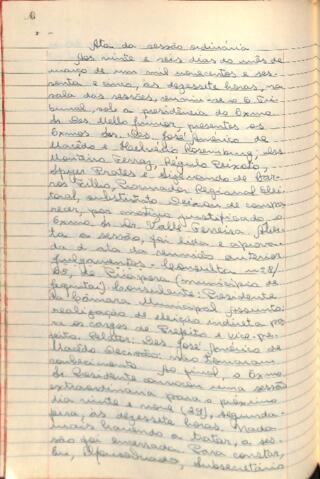 Ata da sessão ordinária
Aos vinte e seis dias do mês de
março de mil novecentos e ses-
senta e cinco, às dezessete horas, na
sala das sessões, reuniu-se o E. Tri-
bunal, sob a presidência do Exmo.
Sr. Des. Mello Júnior, presentes os
Exmos. Srs. Des. José Américo de
Macêdo e Drs.
Monteiro Ferraz, Régulo Peixoto,
Prates e Sigismundo de Bar-
ros Filho, Procurador Regional Elei-
toral, substituto. Deixou de compa-
recer, por motivo justificado, o
Exmo. Sr. Dr. Valle Ferreira. Aber-
ta a sessão, foi lida e aprova-
da a ata da reunião anterior.
Julgamentos - Consulta nº 28/
65, de Pirapora (município de
) Consulente: Presidente
da Câmara Municipal. Assunto:
realização de eleição indireta pa-
ra os cargos de Prefeito e vice-pre-
feito. Relator: Des. José Américo de
Macêdo. Decisão: não tomaram
conhecimento. Ao final, o Exmo.
Sr. Presidente anunciou uma sessão
extraordinária para o próximo
dia vinte e nove (29), segunda-
feira, às dezessete horas. Nada
mais havendo a tratar, a ses-
são foi encerrada. Para constar,
Eu, Subsecretário